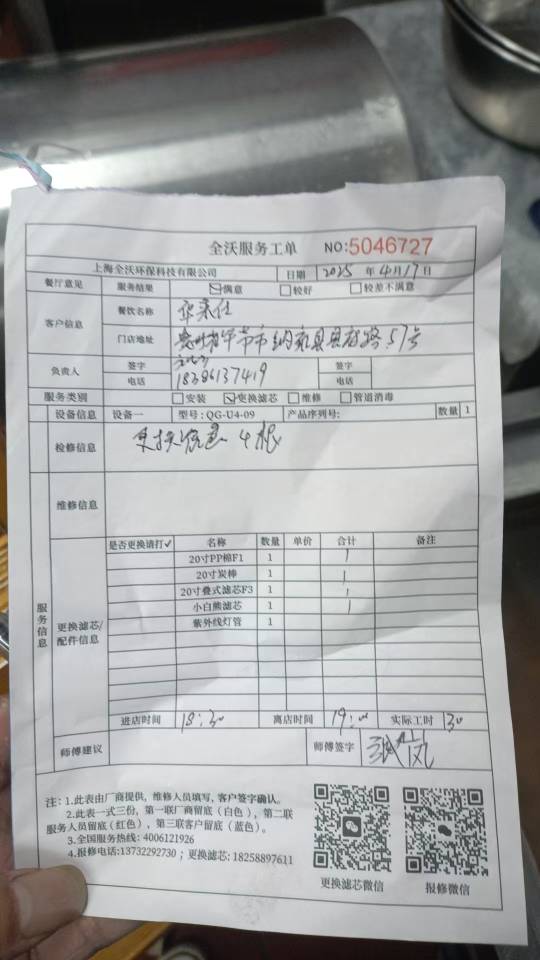 全沃服务工单 NO:5046727
上海全沃环保科技有限公司 日期 2025 年 4 月 17 日
餐厅意见 服务结果 ☑满意 □较好 □较差不满意
客户信息 餐饮名称 华莱仕
门店地址 贵州省毕节市纳雍县县府路57号
负责人 签字 签字
电话 18386137419 电话
服务类别 □安装 ☑更换滤芯 □维修 □管道消毒
设备信息 设备一 型号:QG-U4-09 产品序列号: 数量 1
检修信息 更换滤芯 4根
维修信息
服务信息
更换滤芯/配件信息
是否更换请打✓ 名称 数量 单价 合计 备注
20寸PP棉F1 1 1
20寸炭棒 1 1
20寸叠式滤芯F3 1 1
小白熊滤芯 1 1
紫外线灯管 1
进店时间 18:30 离店时间 19:00 实际工时 30
师傅建议 师傅签字
注:1.此表由厂商提供，维修人员填写，客户签字确认。
2.此表一式三份，第一联厂商留底（白色），第二联
服务人员留底（红色），第三联客户留底（蓝色）。
3.全国服务热线: 4006121926
4.报修电话:13732292730；更换滤芯: 18258897611
更换滤芯微信 报修微信